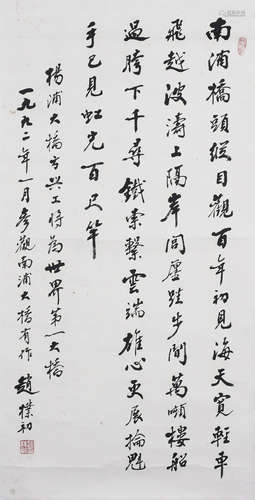 南浦橋頭縱目觀百年初見海天寬輕車
飛越波濤上隔岸閭廛跬步間萬噸樓船
過胯下千尋鐵索繫雲端雄心更展掄魁
手已見虹光百尺竿
楊浦大橋方興工將為世界第一大橋
一九九二年一月參觀南浦大橋有作 趙樸初